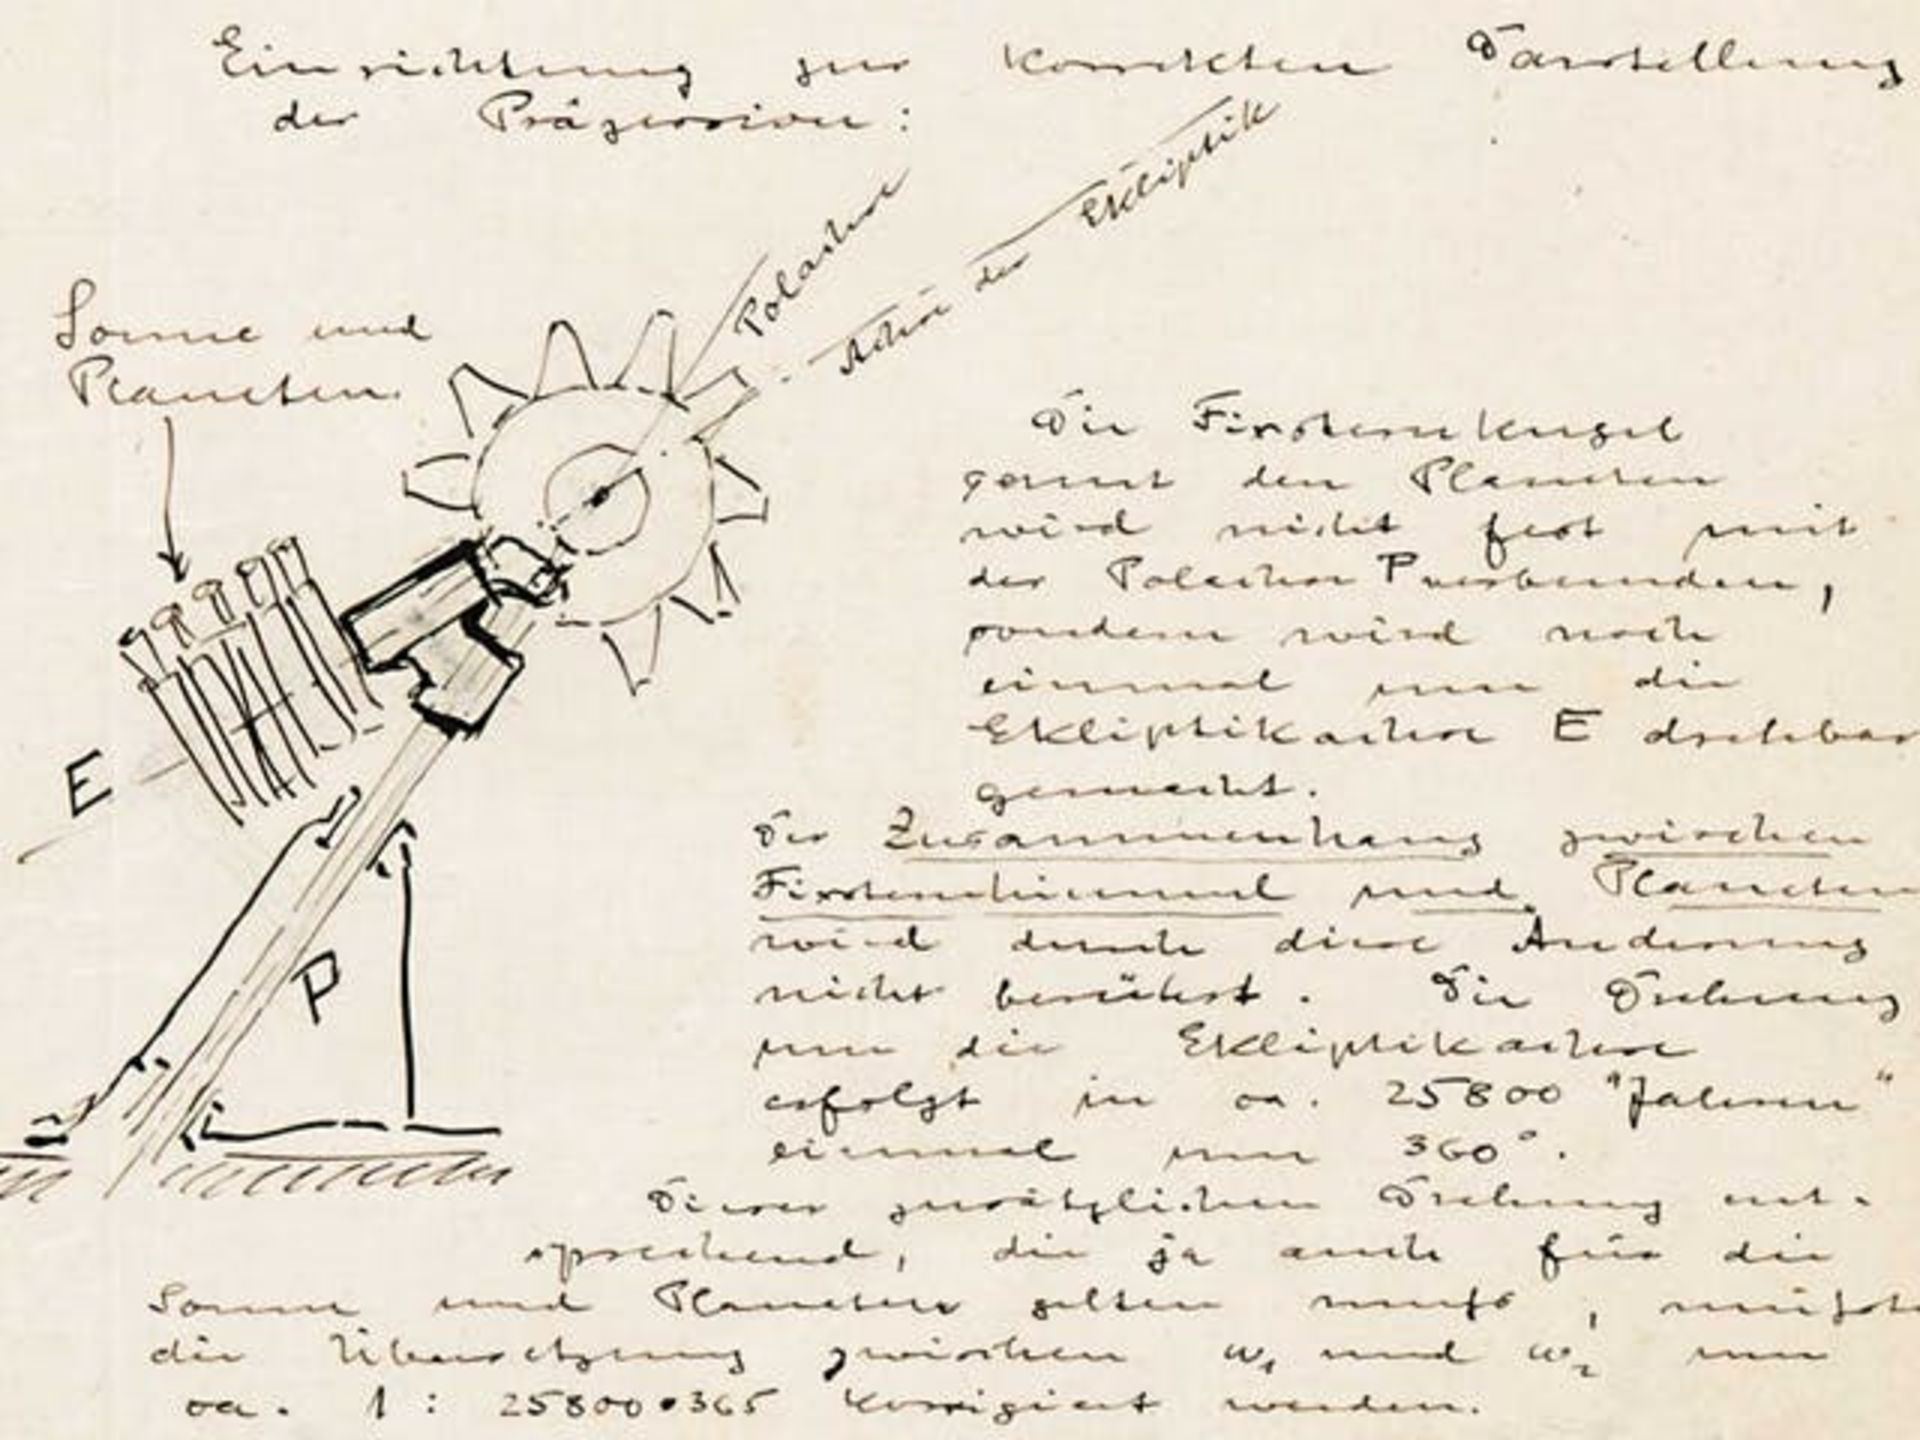 Einrichtung zur korrekten Darstellung
der Präzession:
Polachse
Achse der Ekliptik
Sonne und
Planeten
Die Fixsternkugel
samt den Planeten
wird nicht fest mit
der Polachse P verbunden,
sondern wird noch
einmal um die
Ekliptikachse E drehbar
gemacht.
E
Der Zusammenhang zwischen
Fixsternhimmel und Planeten
wird durch diese Änderung
nicht berührt. Die Drehung
P
um die Ekliptikachse
erfolgt in ca. 25800 "Jahren"
einmal um 360°.
Dieser zusätzlichen Drehung ent-
sprechend, die ja auch für die
Sonne und Planeten gelten muß, müßte
die Übersetzung zwischen w₁ und w₂ um
ca. 1 : 25800•365 korrigiert werden.